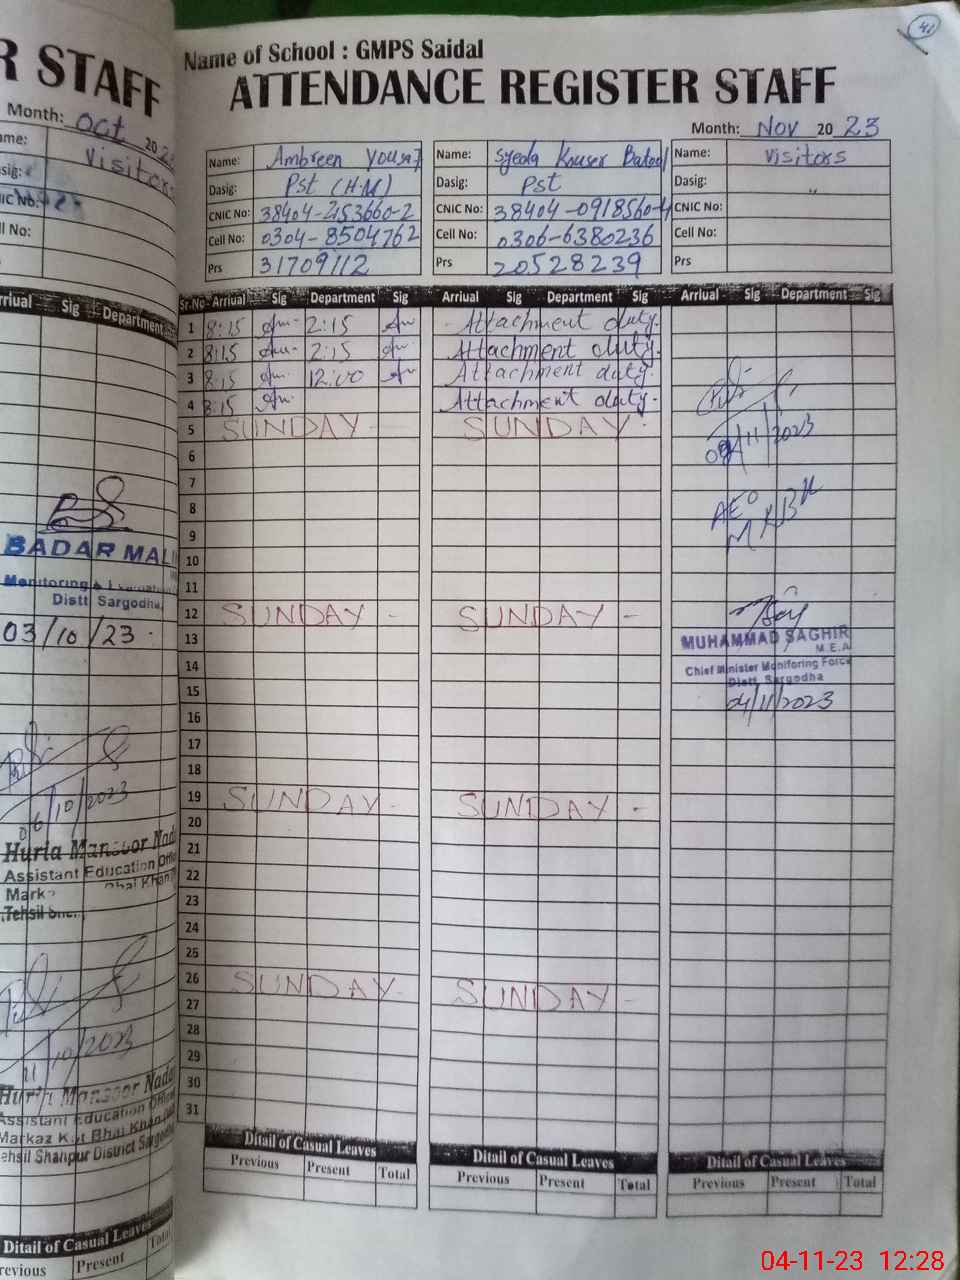 R STAFF
Month: Oct 202
ame: Visitors
asig:
NIC No:
ll No:
rrival Sig Department
BADAR MALI
Monitoring &
Distt Sargodha.
03/10/23
06/10/2023
Huria Mansoor Nad
Assistant Education Offi
Mark
Bhai Khan
Tehsil
11/10/2023
Huria Mansoor Nad
Assistant Education Office
Markaz Kot Bhai Khan
ehsil Shahpur District Sargo
Ditail of Casual Leaves
revious Present Tot
41
Name of School : GMPS Saidal
ATTENDANCE REGISTER STAFF
Month: Nov 2023
Name: Ambreen Yousaf Name: Syeda Kouser Batool Name: Visitors
Dasig: Pst (H.M) Dasig: Pst Dasig: "
CNIC No: 38404-2153660-2 CNIC No: 38404-0918560-4 CNIC No:
Cell No: 0304-8504762 Cell No: 0306-6380236 Cell No:
Prs 31709112 Prs 20528239 Prs
Sr.No Arrival Sig Department Sig Arrival Sig Department Sig Arrival Sig Department Sig
1 8:15 2:15 Attachment duty.
2 8:15 2:15 Attachment duty.
3 8:15 12:00 Attachment duty.
4 8:15 Attachment duty.
5 SUNDAY SUNDAY
6 04/11/2023
7
8 AEO
9
10
11
12 SUNDAY - SUNDAY -
13 MUHAMMAD SAGHIR
M.E.A
14 Chief Minister Monitoring Force
Distt Sargodha
15 04/11/2023
16
17
18
19 SUNDAY - SUNDAY -
20
21
22
23
24
25
26 SUNDAY - SUNDAY -
27
28
29
30
31
Ditail of Casual Leaves Ditail of Casual Leaves Ditail of Casual Leaves
Previous Present Total Previous Present Total Previous Present Total
04-11-23 12:28